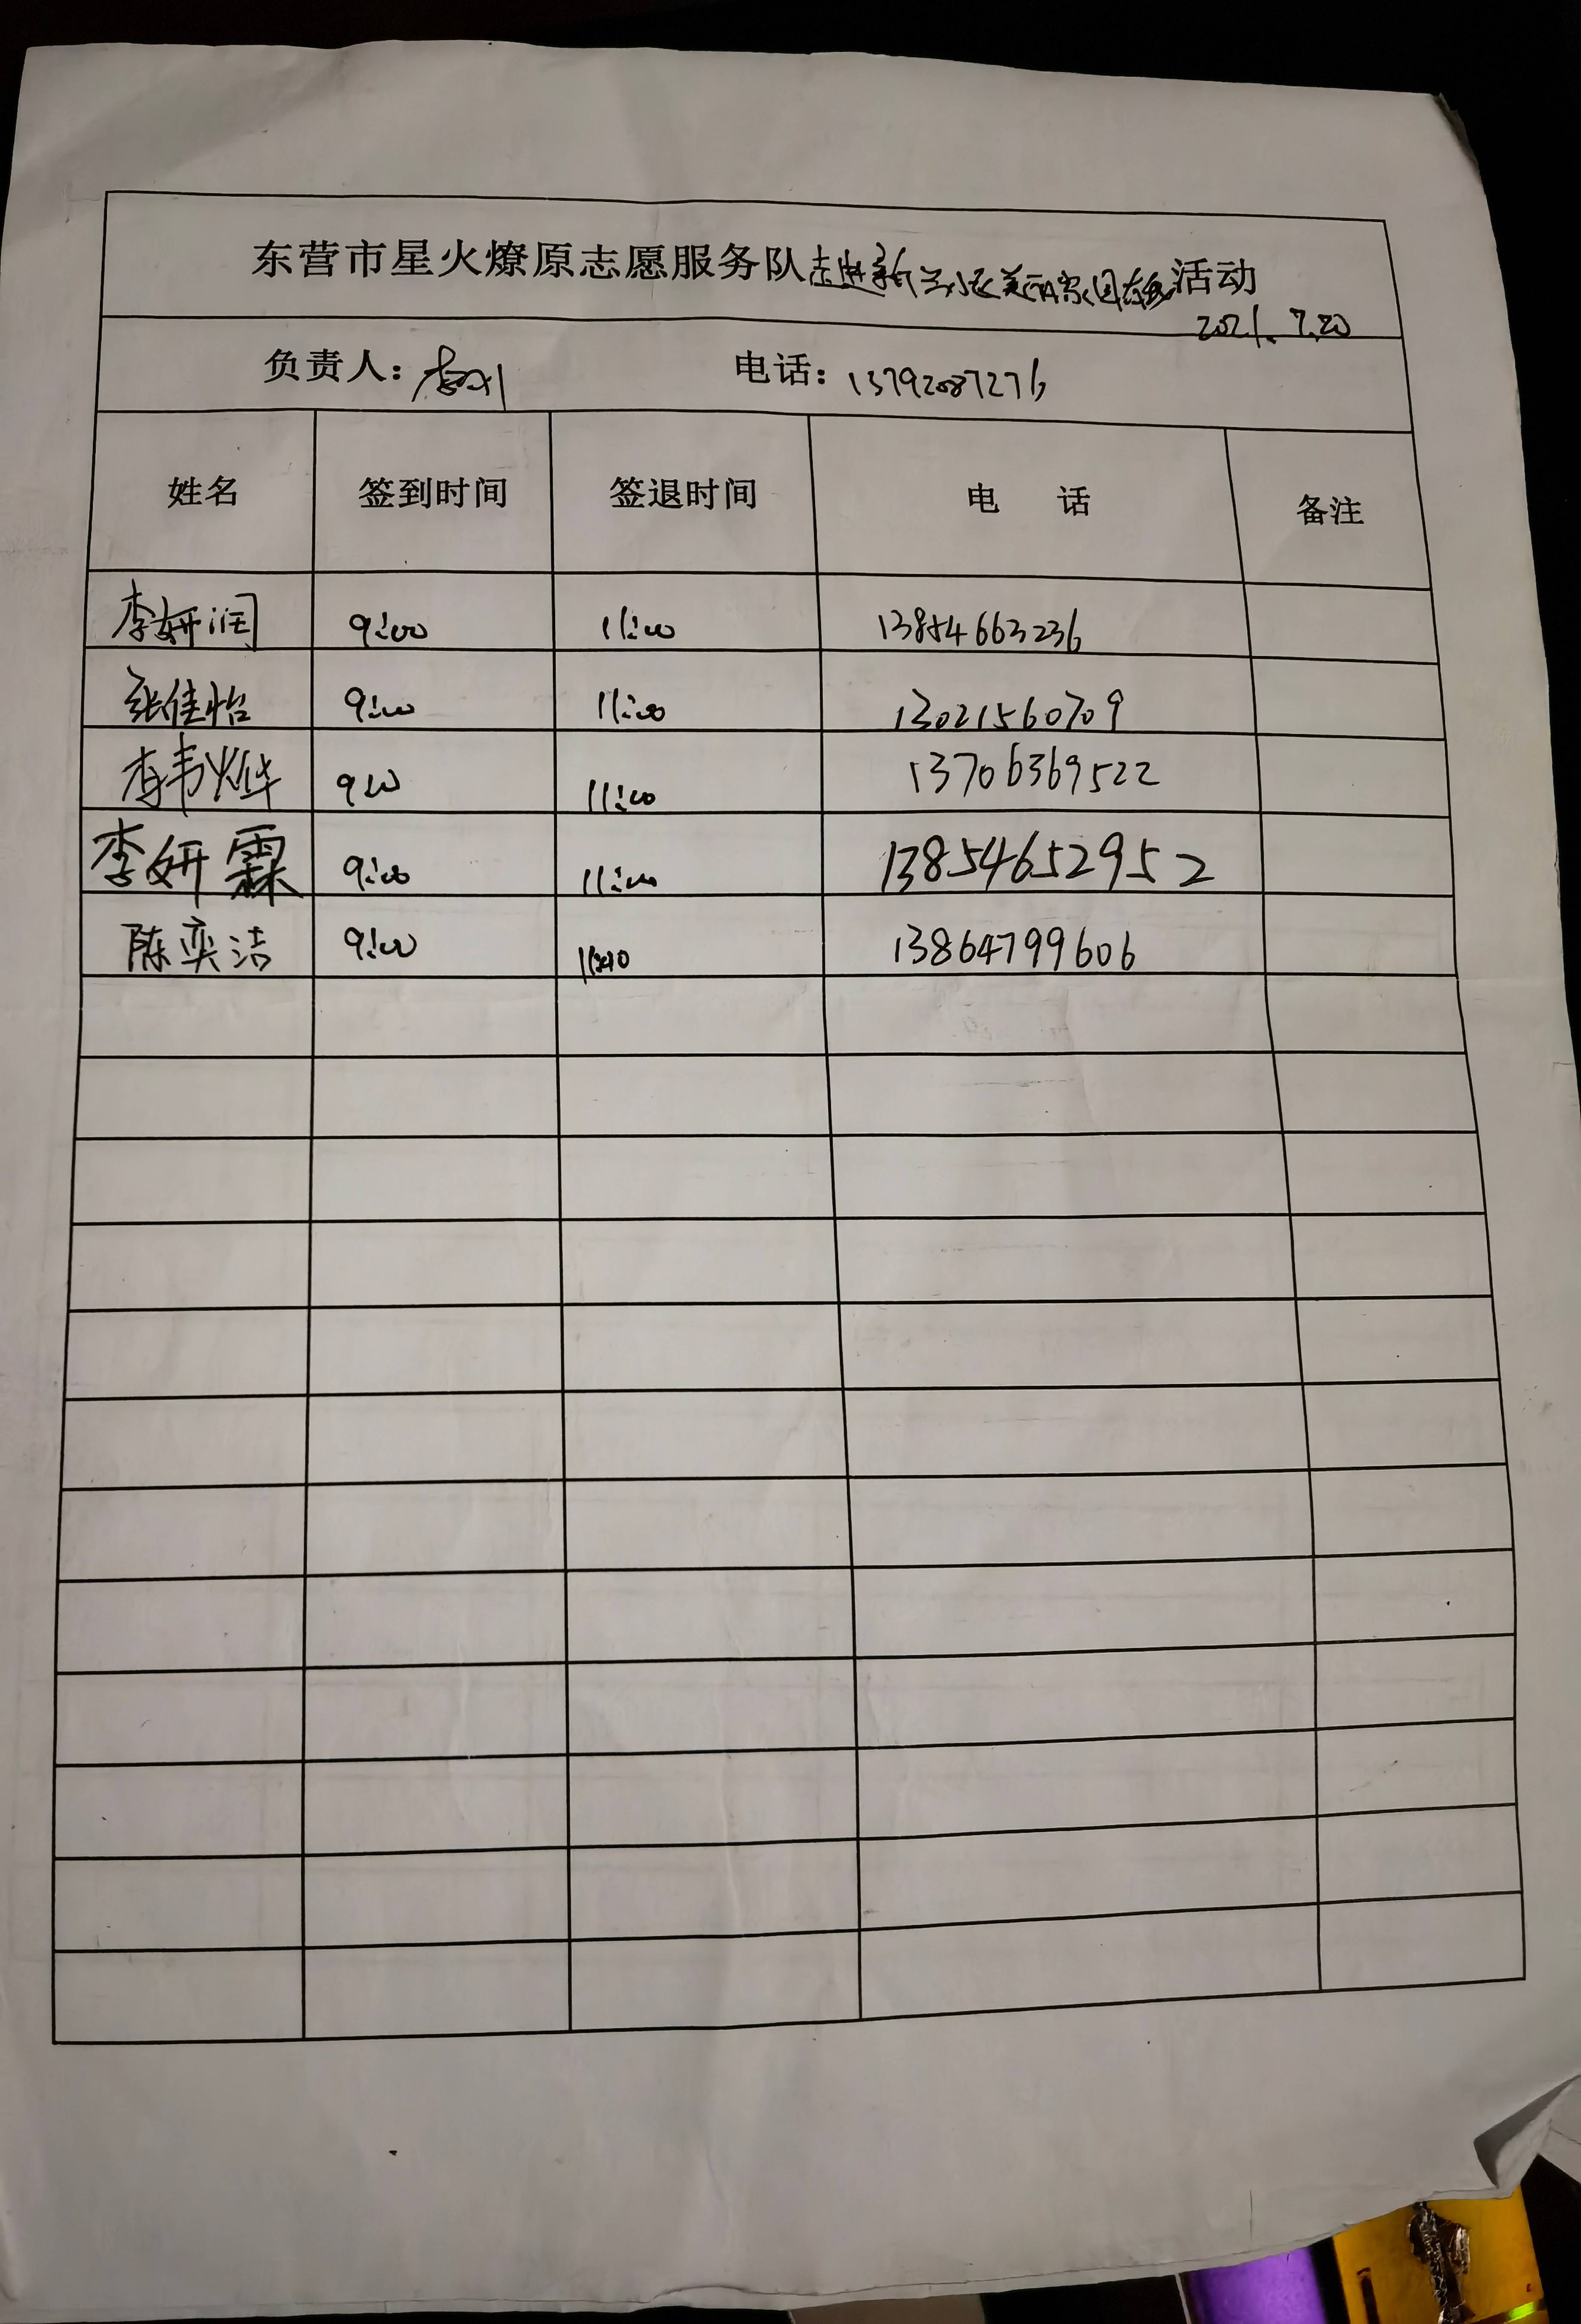 东营市星火燎原志愿服务队走进新兰小区美丽家园在线活动
2021.7.20
负责人： 电话：13792087276
姓名 签到时间 签退时间 电 话 备注
李妍润 9:00 11:00 13854663236
张佳怡 9:00 11:00 13021560709
李韦烨 9:00 11:00 13706369522
李妍霖 9:00 11:00 13854652952
陈奕洁 9:00 11:00 13864799606